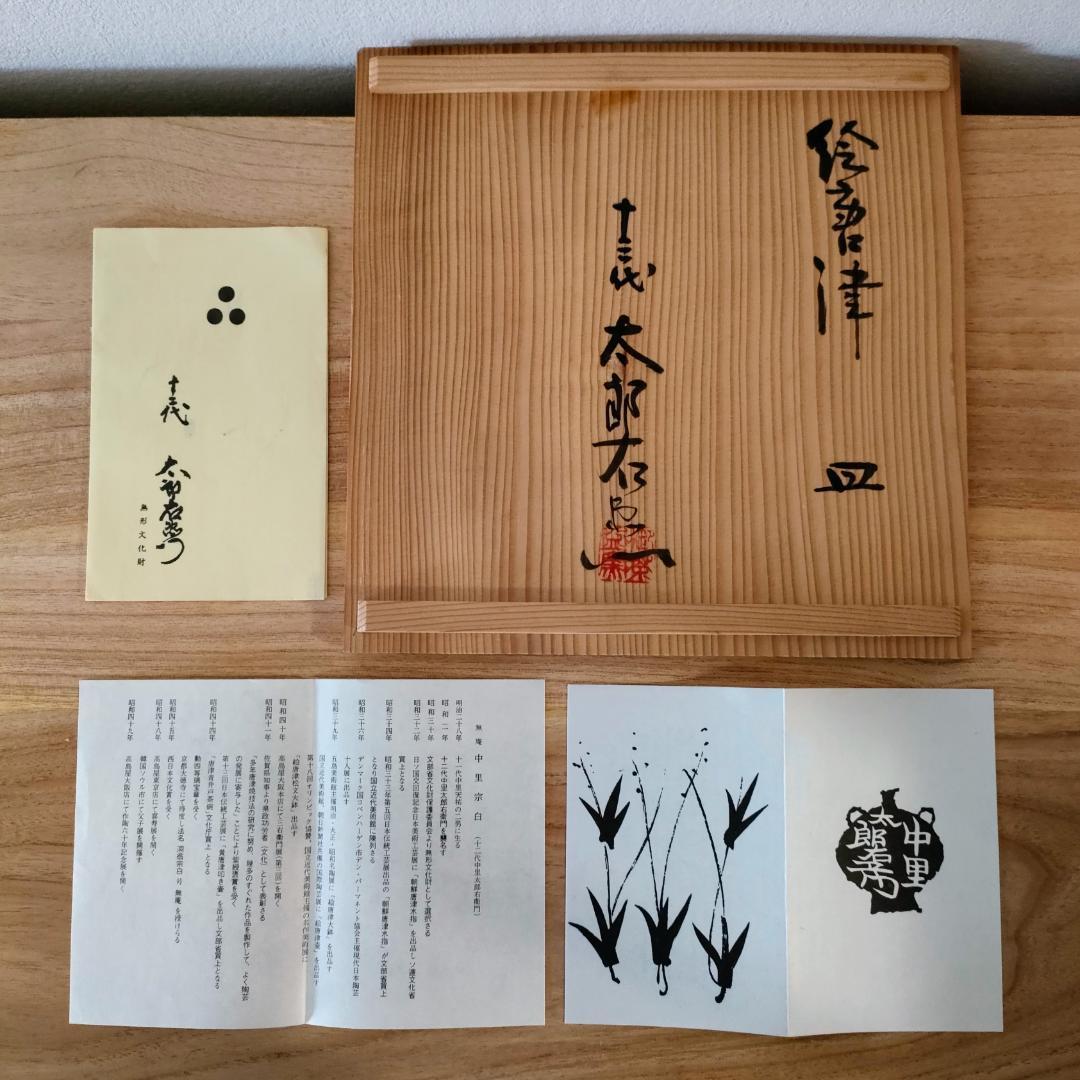 絵唐津
皿
十三代
太郎右衛門
十三代
太郎右衛門
無形文化財
無庵 中里宗白 (十二代中里太郎右衛門)
明治二十八年 十一代中里天祐の二男に生る
昭和二年 十二代中里太郎右衛門を襲名す
昭和三十年 文部省文化財保護委員会より無形文化財として選択さる
昭和三十二年 日ソ国交回復記念日本美術工芸展に「朝鮮唐津水指」を出品しソ連文化省
買上となる
昭和三十四年 昭和三十三年第五回日本伝統工芸展出品の「朝鮮唐津水指」が文部省買上
となり国立近代美術館に陳列さる
昭和三十六年 デンマーク国コペンハーゲン市デン・パーマネント協会主催現代日本陶芸
十人展に出品す
昭和三十九年 五島美術館主催明治・大正・昭和名陶展に「絵唐津大鉢」を出品す
国立近代美術館、朝日新聞社共催の国際陶芸展に「絵唐津壷」を出品す
第十八回オリンピック協賛、国立近代美術館主催の
「絵唐津松文大鉢」出品す
昭和四十年 高島屋大阪本店にて三右衛門展(第三回)を開く
昭和四十一年 佐賀県知事より県政功労者(文化)として表彰さる
「多年唐津焼技法の研究に努め、幾多のすぐれた作品を製作して、よく陶芸
の発展に寄与した」ことにより紫綬褒賞を受く
昭和四十四年 第十三回日本伝統工芸展に「黄唐津叩き壷」を出品し文部省買上となる
「唐津青井戸茶碗」文化庁買上となる
勲四等瑞宝章を受く
京都大徳寺にて得度し法名
昭和四十五年 西日本文化賞を受く
高島屋東京に喜寿展を開く
昭和四十八年 韓国ソウル市に父子展を開催す
昭和四十九年 高島屋大阪店にて作陶六十年記念展を開く
中里
太郎右衛門